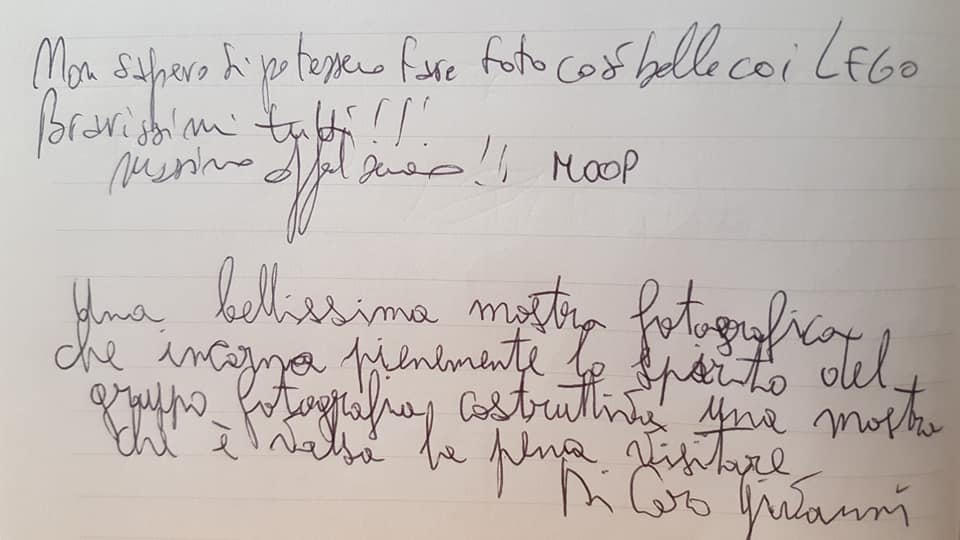 Non sapevo si potessero fare foto così belle coi LEGO
Bravissimi tutti!!!
!! MOOP
Una bellissima mostra fotografica
che incarna pienamente lo spirito del
gruppo fotografia costruttiva, una mostra
che è valsa la pena visitare
Di Caro Giovanni